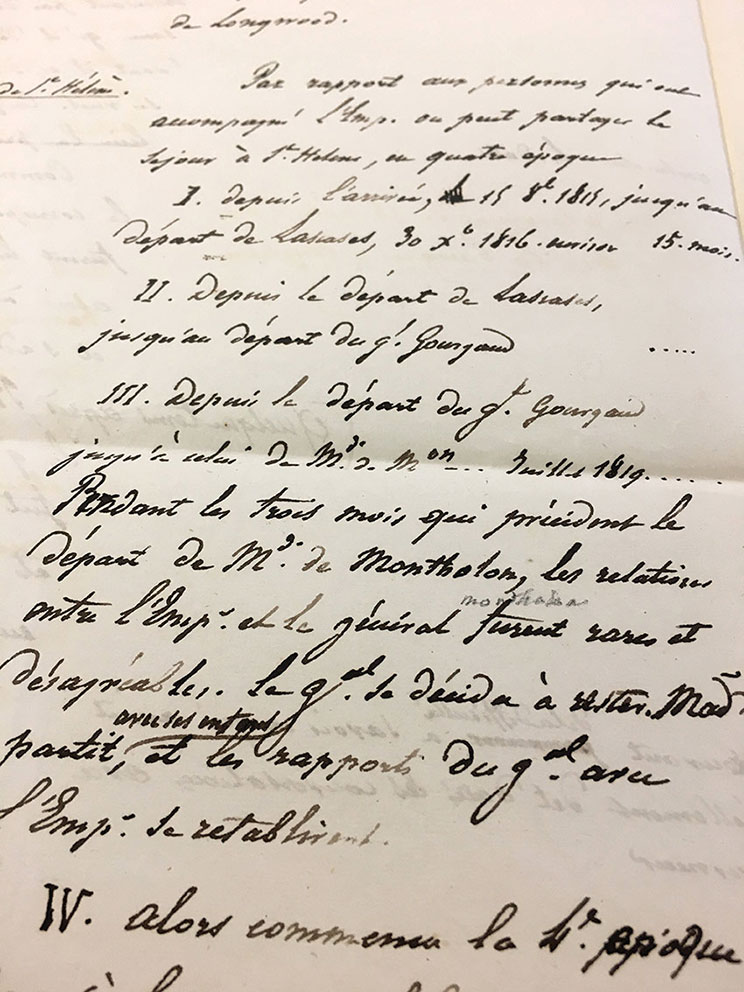 de Longwood.
de Ste Hélène.
Par rapport aux personnes qui ont
accompagné l'Emp. on peut partager le
séjour à Ste Helene, en quatre époques
I. depuis l'arrivée, 15 8e. 1815, jusqu'au
départ de Lascases, 30 Xe. 1816. environ 15. mois.
II. Depuis le départ de Lascases,
jusqu'au départ du gl. Gourgaud .....
III. Depuis le départ du gl. Gourgaud
jusqu'à celui de Mde. de Mon... Juillet 1819.....
Pendant les trois mois qui précédent le
départ de Mde. de Montholon, les relations
montholon
entre l'Empr. et le général furent rares et
désagréables. le gal. se décida à rester. Made
avec ses enfans
partit, et les rapports du gal avec
l'Empr. se retablirent.
IV. alors commença la 4e. époque